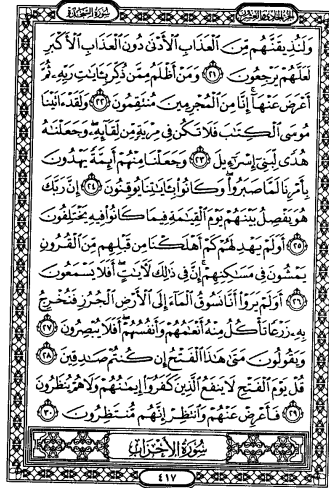 الجزء الحادي والعشرون
سورة السجدة
وَلَنُذِيقَنَّهُم مِّنَ ٱلْعَذَابِ ٱلْأَدْنَىٰ دُونَ ٱلْعَذَابِ ٱلْأَكْبَرِ
لَعَلَّهُمْ يَرْجِعُونَ ٢١ وَمَنْ أَظْلَمُ مِمَّن ذُكِّرَ بِـَٔايَٰتِ رَبِّهِۦ ثُمَّ
أَعْرَضَ عَنْهَآ إِنَّا مِنَ ٱلْمُجْرِمِينَ مُنتَقِمُونَ ٢٢ وَلَقَدْ ءَاتَيْنَا
مُوسَى ٱلْكِتَٰبَ فَلَا تَكُن فِى مِرْيَةٍ مِّن لِّقَآئِهِۦ وَجَعَلْنَٰهُ
هُدًى لِّبَنِىٓ إِسْرَٰٓءِيلَ ٢٣ وَجَعَلْنَا مِنْهُمْ أَئِمَّةً يَهْدُونَ
بِأَمْرِنَا لَمَّا صَبَرُوا۟ وَكَانُوا۟ بِـَٔايَٰتِنَا يُوقِنُونَ ٢٤ إِنَّ رَبَّكَ
هُوَ يَفْصِلُ بَيْنَهُمْ يَوْمَ ٱلْقِيَٰمَةِ فِيمَا كَانُوا۟ فِيهِ يَخْتَلِفُونَ
٢٥ أَوَلَمْ يَهْدِ لَهُمْ كَمْ أَهْلَكْنَا مِن قَبْلِهِم مِّنَ ٱلْقُرُونِ
يَمْشُونَ فِى مَسَٰكِنِهِمْ إِنَّ فِى ذَٰلِكَ لَـَٔايَٰتٍ أَفَلَا يَسْمَعُونَ
٢٦ أَوَلَمْ يَرَوْا۟ أَنَّا نَسُوقُ ٱلْمَآءَ إِلَى ٱلْأَرْضِ ٱلْجُرُزِ فَنُخْرِجُ
بِهِۦ زَرْعًا تَأْكُلُ مِنْهُ أَنْعَٰمُهُمْ وَأَنفُسُهُمْ أَفَلَا يُبْصِرُونَ ٢٧
وَيَقُولُونَ مَتَىٰ هَٰذَا ٱلْفَتْحُ إِن كُنتُمْ صَٰدِقِينَ ٢٨
قُلْ يَوْمَ ٱلْفَتْحِ لَا يَنفَعُ ٱلَّذِينَ كَفَرُوٓا۟ إِيمَٰنُهُمْ وَلَا هُمْ يُنظَرُونَ
٢٩ فَأَعْرِضْ عَنْهُمْ وَٱنتَظِرْ إِنَّهُم مُّنتَظِرُونَ ٣٠
سُورَةُ الأَحْزَابِ
٤١٧